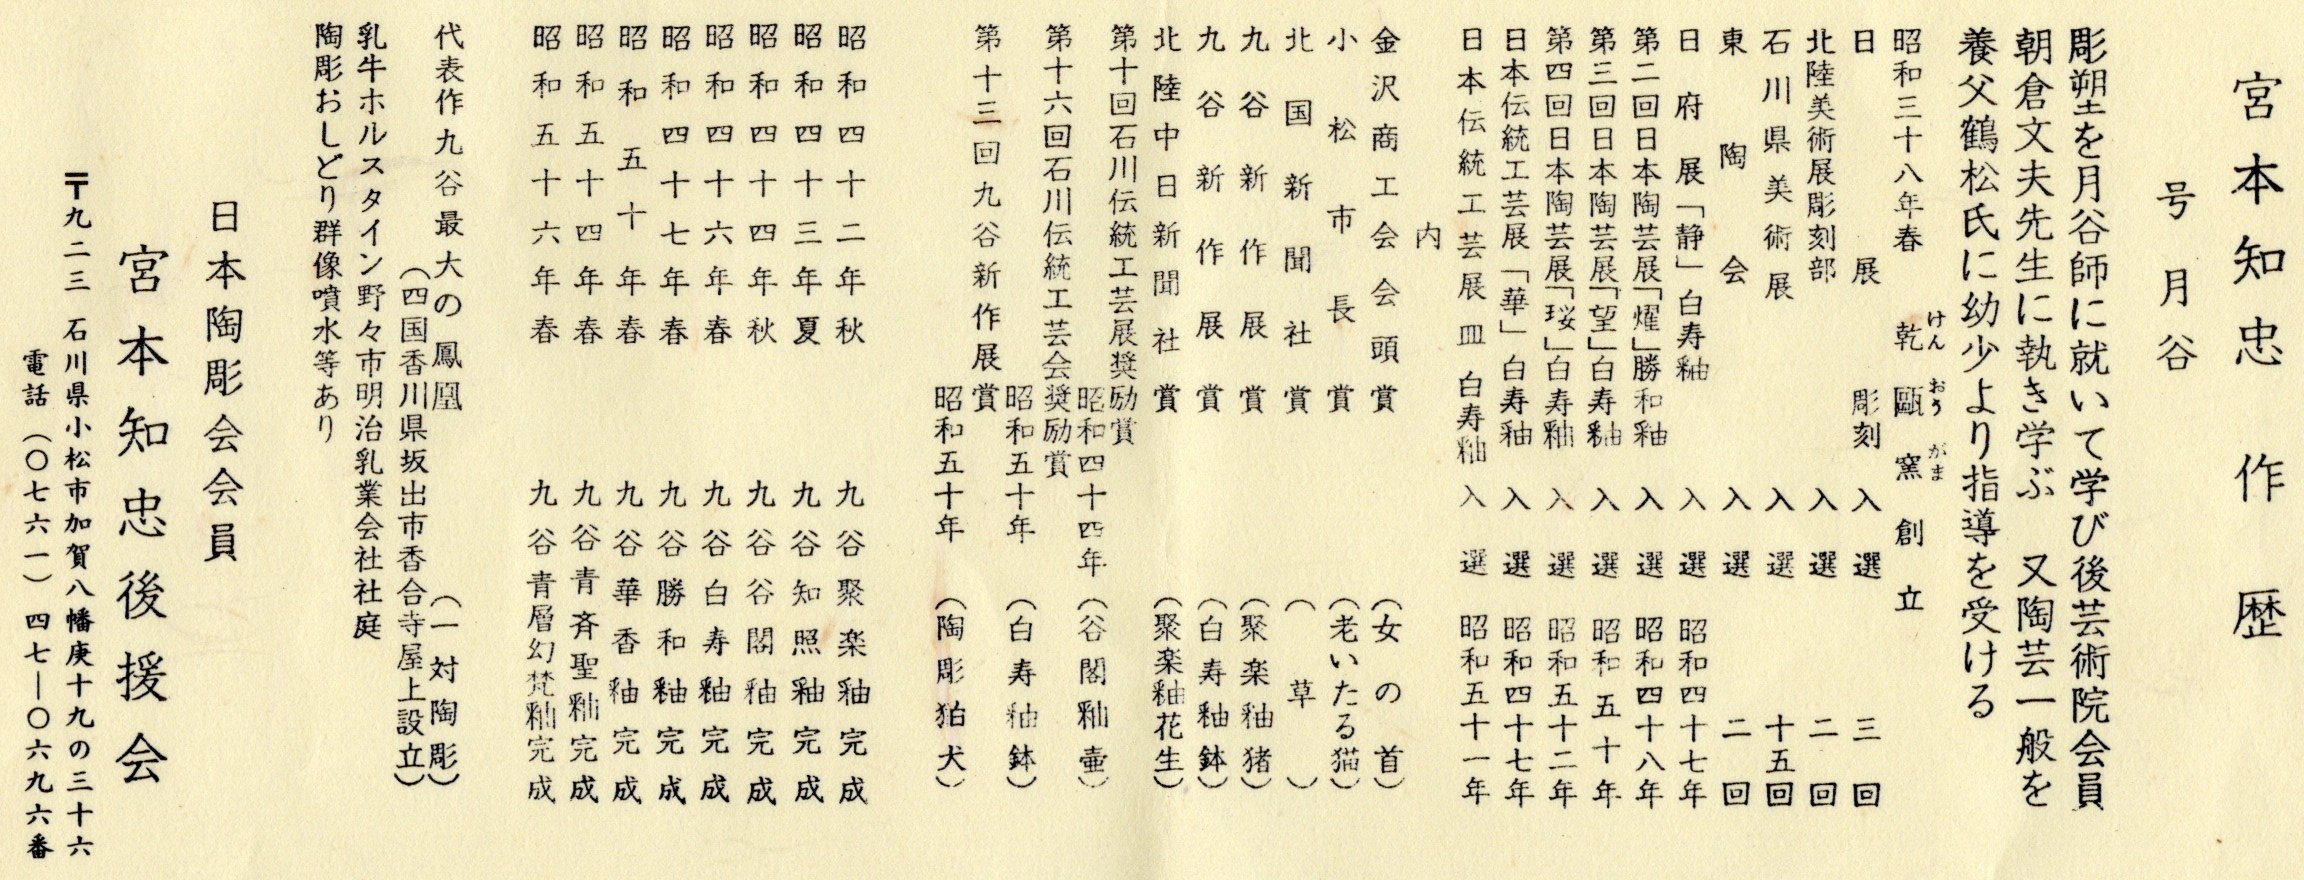 宮本知忠作歴
号月谷
彫塑を月谷師に就いて学び後芸術院会員
朝倉文夫先生に執き学ぶ　又陶芸一般を
養父鶴松氏に幼少より指導を受ける
昭和三十八年春　乾甌窯創立
けんおうがま
日展　彫刻　入選　三回
北陸美術展彫刻部　入選　二回
石川県美術展　入選　十五回
東陶会　入選　二回
日府展「静」白寿釉　入選　昭和四十七年
第二回日本陶芸展「燿」勝和釉　入選　昭和四十八年
第三回日本陶芸展「望」白寿釉　入選　昭和五十年
第四回日本陶芸展「㛐」白寿釉　入選　昭和五十二年
日本伝統工芸展「華」白寿釉　入選　昭和四十七年
日本伝統工芸展皿　白寿釉　入選　昭和五十一年
内
金沢商工会会頭賞　（女の首）
小松市長賞　（老いたる猫）
北国新聞社賞　（草）
九谷新作展賞　（聚楽釉猪）
九谷新作展賞　（白寿釉鉢）
北陸中日新聞社賞　（聚楽釉花生）
第十回石川伝統工芸展奨励賞
昭和四十四年　（谷閣釉壷）
第十六回石川伝統工芸会奨励賞
昭和五十年　（白寿釉鉢）
第十三回九谷新作展賞
昭和五十年　（陶彫狛犬）
昭和四十二年秋　九谷聚楽釉完成
昭和四十三年夏　九谷知照釉完成
昭和四十四年秋　九谷谷閣釉完成
昭和四十六年春　九谷白寿釉完成
昭和四十七年春　九谷勝和釉完成
昭和五十年春　九谷華香釉完成
昭和五十四年春　九谷青斉聖釉完成
昭和五十六年春　九谷青層幻梵釉完成
代表作九谷最大の鳳凰　（一対陶彫）
（四国香川県坂出市香合寺屋上設立）
乳牛ホルスタイン野々市明治乳業会社社庭
陶彫おしどり群像噴水等あり
日本陶彫会会員
宮本知忠後援会
〒九二三　石川県小松市加賀八幡庚十九の三十六
電話（〇七六一）四七―〇六九六番